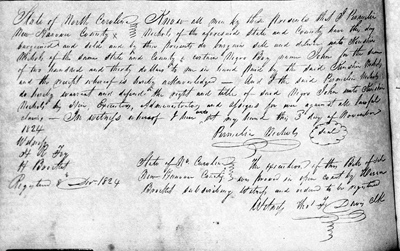 State of North Carolina Know all men by these Presents that I Permelia
New Hanover County Nickols of the aforesaid State and County have this day
bargained and sold and by these presents do bargain sell and deliver unto
Nickols of the same State and County a certain Negro Boy name John for the sum
of two hundred and thirty dollars to me in hand paid by the said Nickols
and the receipt whereof is hereby acknowledged I the said Permelia Nickols
do hereby warrant and defend the right and title of said Negro John unto
Nickols his Heirs, Executors, Administrators and assigns for ever against all lawful
claims In witness whereof I have set my hand this 3d day of November
1824
Permelia Nickols Seal
Witness
H W
Bombet
Registered 8th Dec 1824
State of No Carolina
New Hanover County
The execution of this Bill of sale
was proven in open court by
subscribing Witness and ordered to be registered
Witness Thos F Davis Clk